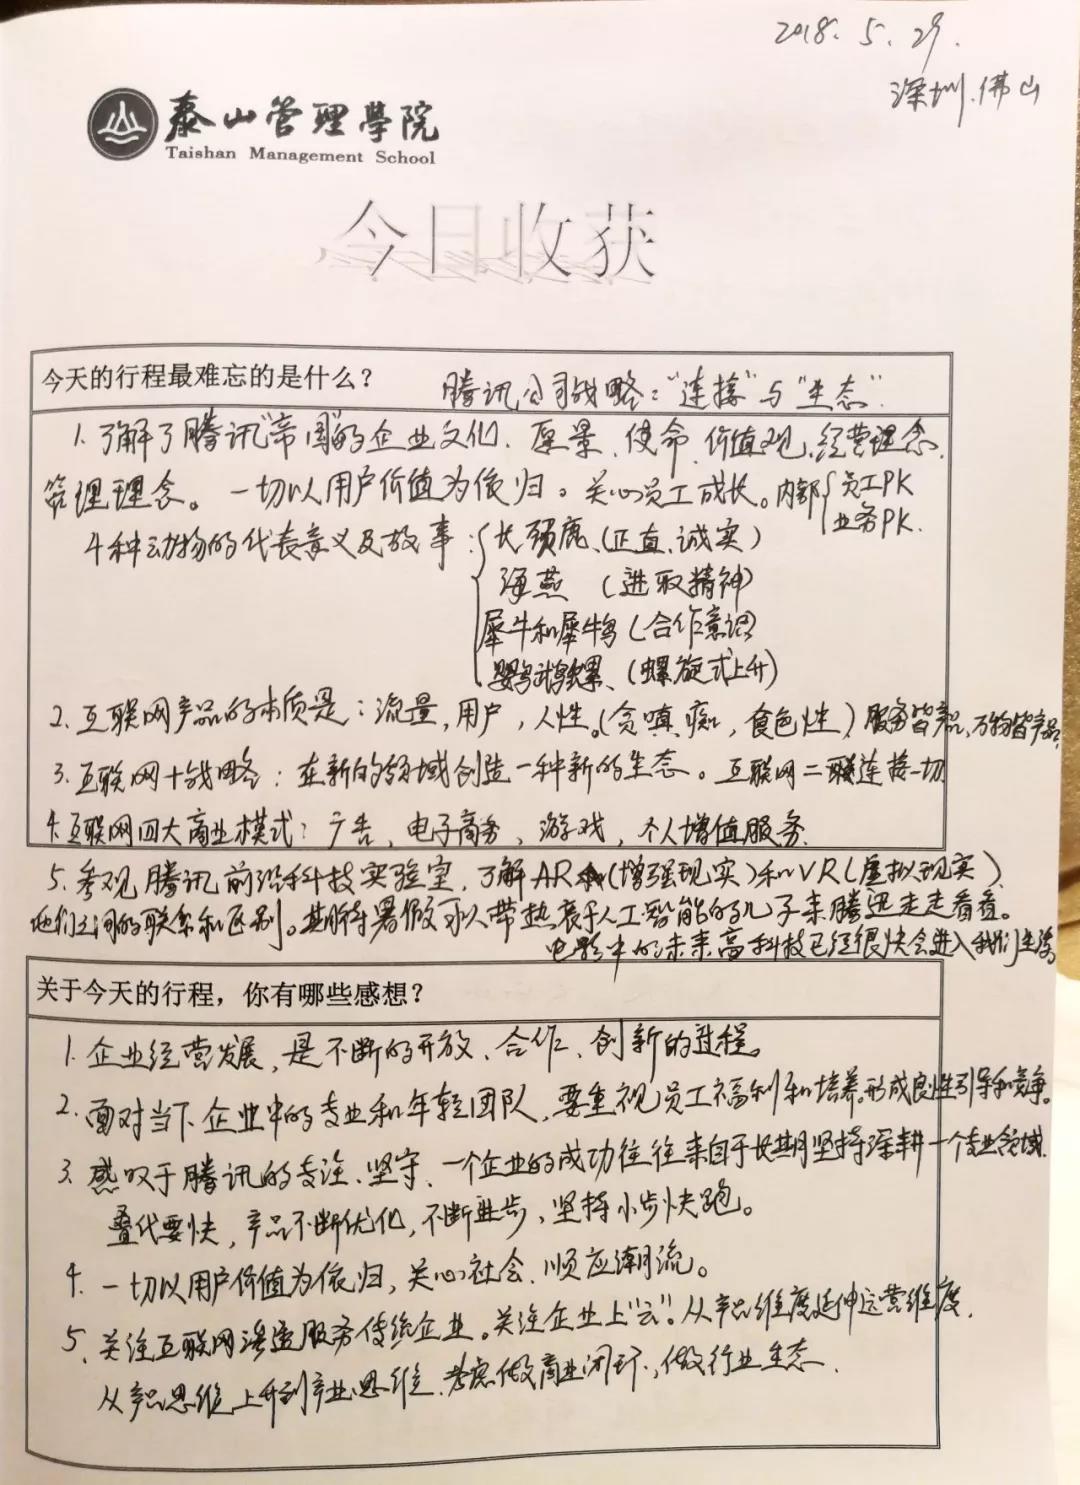 2018. 5. 29.
深圳.佛山
泰山管理學院
Taishan Management School
今日收获
今天的行程最难忘的是什么？ 腾讯公司战略："连接"与"生态".
1. 了解了腾讯"帝国"的企业文化、愿景、使命、价值观、经营理念、
管理理念。一切以用户价值为依归。关心员工成长。内部{员工PK
业务PK.
4种动物的代表意义及故事:{长颈鹿、(正直、诚实)
海燕 (进取精神)
犀牛和犀牛鸟(合作意识)
鹦鹉螺、(螺旋式上升)
2. 互联网产品的本质是：流量,用户,人性。(贪嗔痴,食色性)服务皆产品、万物皆产品;
3. 互联网十战略：在新的领域创造一种新的生态。互联网二联连接一切
4. 互联网四大商业模式：广告、电子商务、游戏,个人增值服务.
5. 参观腾讯前沿科技实验室,了解AR(增强现实)和VR(虚拟现实)
他们之间的联系和区别。期待暑假可以带热衷于人工智能的儿子来腾迅走走看看。
电影中的未来高科技已经很快会进入我们生活
关于今天的行程，你有哪些感想？
1. 企业经营发展,是不断的开放、合作、创新的进程。
2. 面对当下企业中的专业和年轻团队,要重视员工福利和培养.形成良性引导和竞争。
3. 感叹于腾讯的专注、坚守、一个企业的成功往往来自于长期坚持深耕一个专业领域.
叠代要快,产品不断优化,不断进步,坚持小步快跑。
4. 一切以用户价值为依归,关心社会、顺应潮流。
5、关注互联网渗透服务传统企业。关注企业上"云"。从产品维度延伸运营维度.
从产品思维上升到产业思维、考虑做商业闭环,做行业生态.